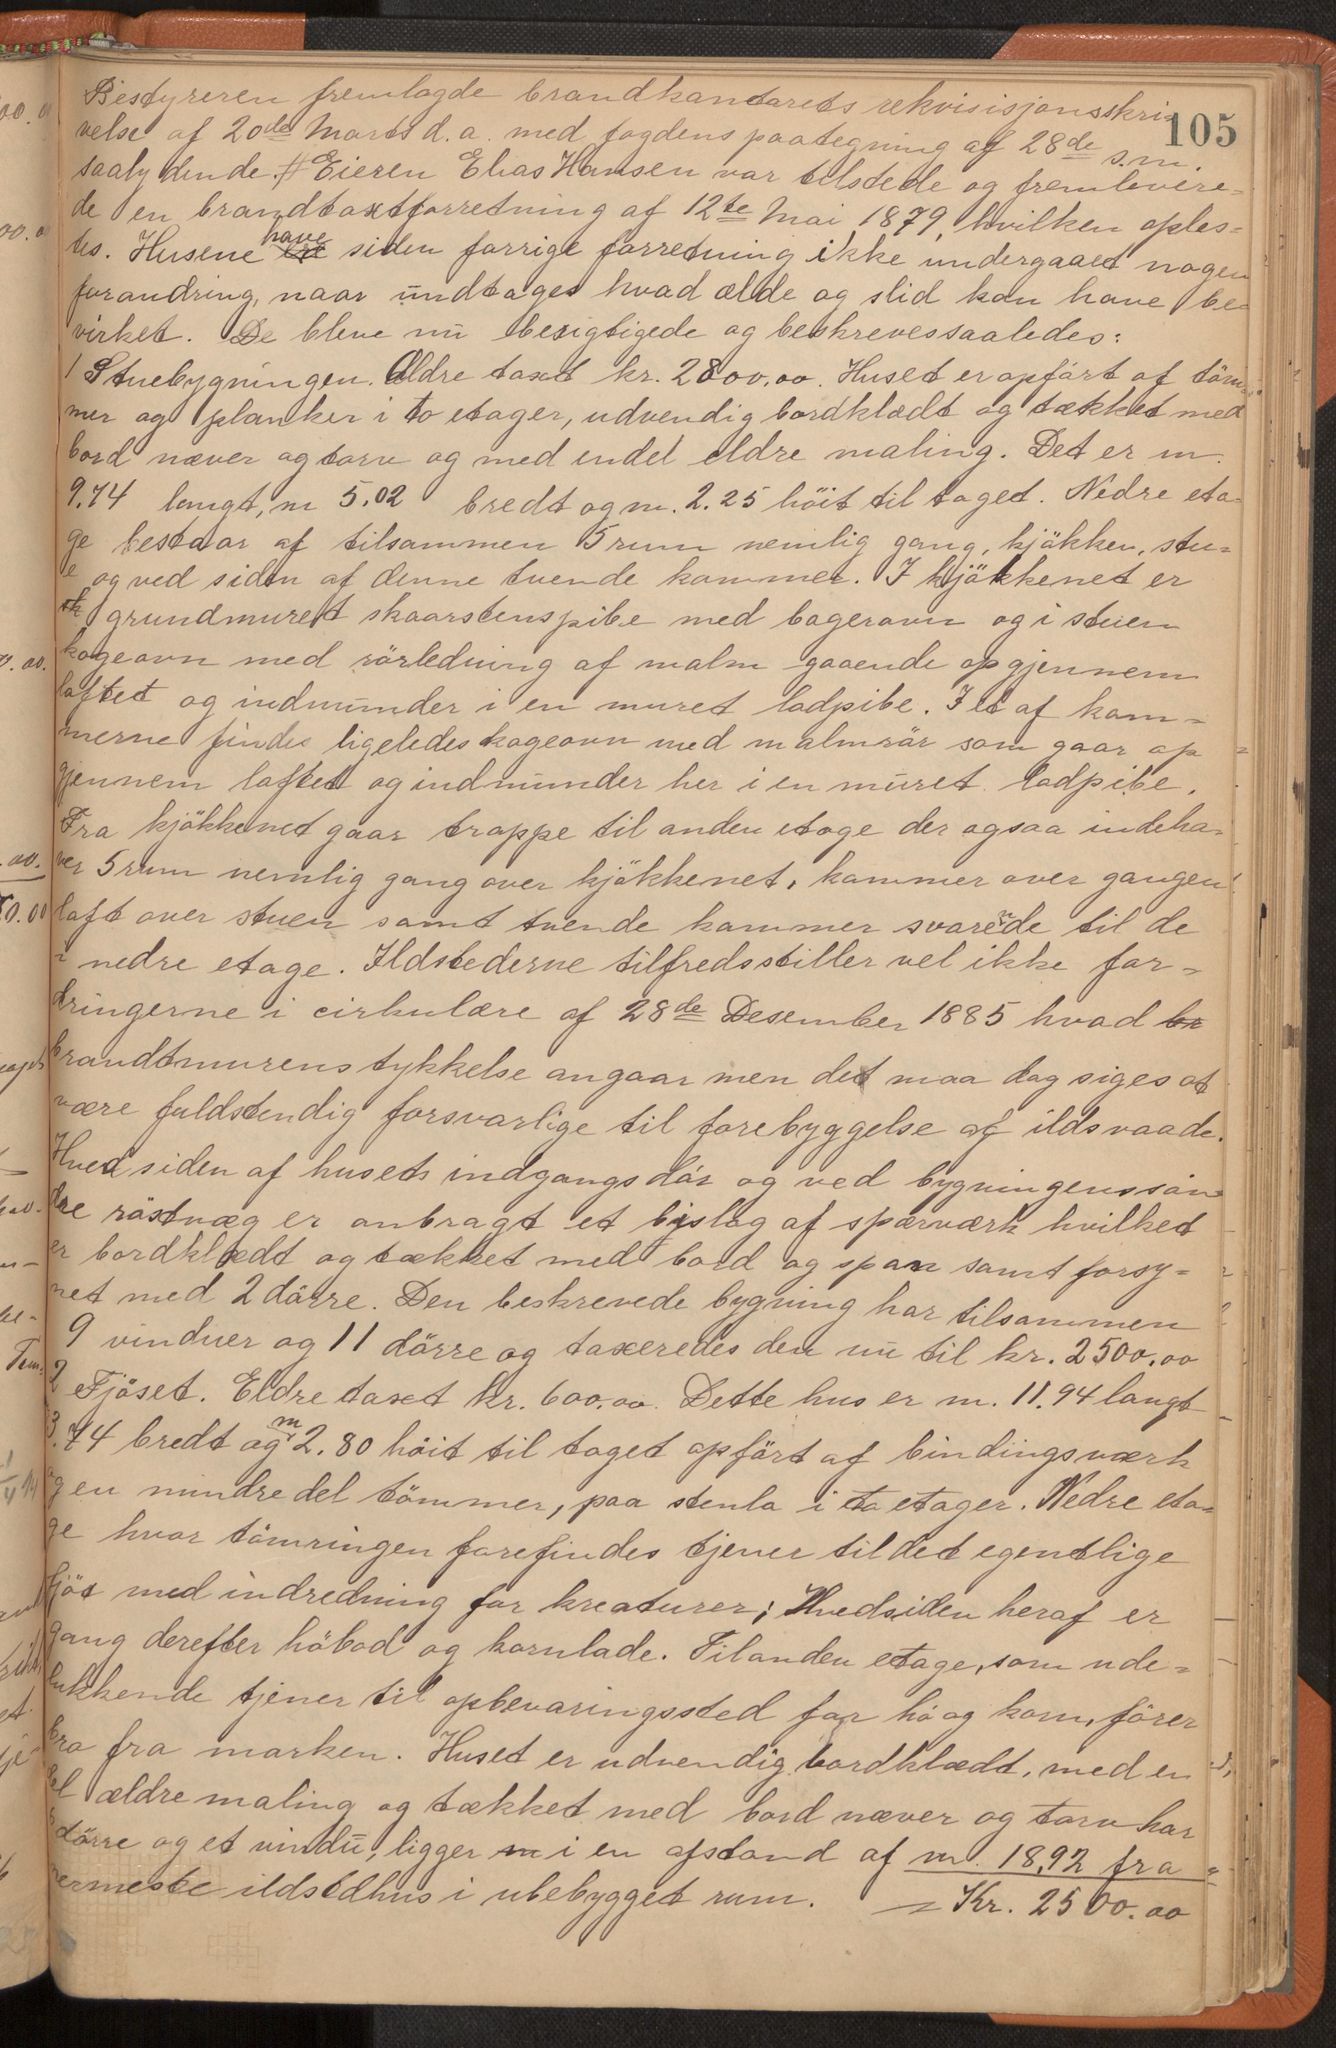 105
Bestyreren fremlagde brandkantorets rekvisisjonsskri-
velse af 20de Marts d. a. med fogdens paategning af 28de s.m.
saalydende. # Eieren Elias Hansen var tilstede og fremlevere-
de en brandtaxtforretning af 12te Mai 1879, hvilken oples-
tes. Husene have siden forrige forretning ikke undergaaet nogen
forandring, naar undtages hvad ælde og slid kan have be-
virket. De bleve nu besigtigede og beskreves saaledes:
1 Stuebygningen. Ældre taxt kr. 2800.00. Huset er opført af töm-
mer og planker i to etager, udvendig bordklædt og tækket med
bord næver og torv og med endel eldre maling. Det er m
9.74 langt, m 5.02 bredt og m. 2.25 höit til taget. Nedre eta-
ge bestaar af tilsammen 5 rum nemlig gang, kjökken, stu-
e og ved siden af denne tvende kammer. I kjökkenet er
grundmuret skaarstenspibe med bagerovn og i stuen
kogeovn med rörledning af malm gaaende opgjennem
loftet og indmunder i en muret ladpibe. I et af kam-
merne findes ligeledes kogeovn med malmrör som gaar op
gjennem loftet og indmunder her i en muret ladpibe.
Fra kjökkenet gaar trappe til anden etage der ogsaa indeha-
ver 5 rum nemlig gang over kjökkenet, kammer over gangen
loft over stuen samt tvende kammer svarende til de
i nedre etage. Ildstederne tilfredsstiller vel ikke for-
dringerne i cirkulære af 28de Desember 1885 hvad br
brandtmurens tykkelse angaar men det maa dog siges at
være fuldstendig forsvarlige til forebyggelse af ildsvaade.
Hved siden af husets indgangsdör og ved bygningens sön-
dre röstvæg er anbragt et bislag af spærværk hvilket
er bordklædt og tækket med bord og span samt forsy-
net med 2 dörre. Den beskrevede bygning har tilsammen
9 vinduer og 11 dörre og taxeredes den nu til kr. 2500.00
2 Fjöset. Eldre taxt kr. 600.00. Dette hus er m. 11.94 langt
3.74 bredt og m 2.80 höit til taget opfört af bindingsværk
og en mindre del tömmer, paa stenla i to etager. Nedre eta-
ge hvor tömringen forefindes tjener til det egentlige
fjös med indredning for kreaturer; Hvedsiden heraf er
gang derefter höbod og kornlade. Til anden etage, som ude-
lukkende tjener til opbevaringssted for hö og korn, förer
bro fra marken. Huset er udvendig bordklædt, med en
del ældre maling og tækket med bord næver og torv har
dörre og et vindu, ligger m i en afstand af m. 18,92 fra
nermeste ildstdhus i ubebygget rum. = Kr. 2500.00